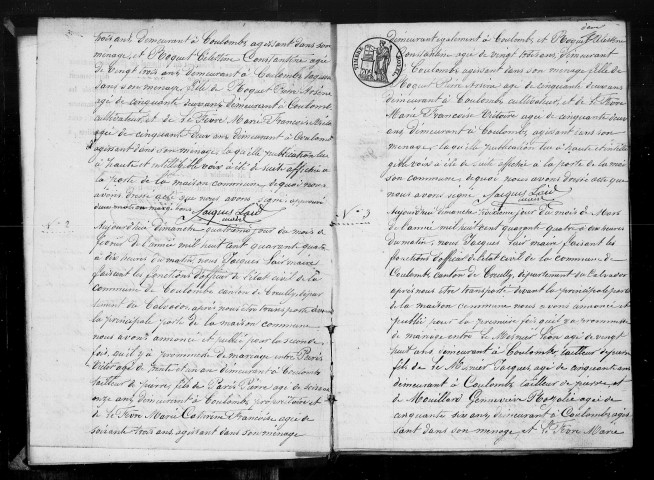 trois ans demeurant à Coulombs agissant dans son
ménage, et Roquet Celestine Constantine agée
de vingt trois ans demeurant à Coulombs agissant
dans son ménage fille de Roquet Pierre Arsène
agé de cinquante deux ans demeurant à Coulombs
cultivateur et de Le Fevre Marie Françoise
agée de cinquante deux ans demeurant à Coulombs
agissant dans son ménage la qu'elle publication lue
à haute et intelligible voix à été de suite affichée a
la porte de la maison commune de quoi nous
avons dressé acte que nous avons signé approuvé
Jacques Lair
maire
N° 2
Aujourd'hui dimanche quatrième jour du mois de
de l'année mil huit cent quarante quatre
à dix heures du matin, nous Jacques Lair maire
faisant les fonctions d'officier de l'état civil de la
commune de Coulombs canton de Creully, départe
ment du Calvados, après nous être transporté devant
la principale porte de la maison commune
nous avons annoncé et publié pour la seconde
fois, qu'il y a prommesse de mariage entre Paris
Victor agé de trente et un ans demeurant à Coulombs
tailleur de pierres fils de Paris Pierre agé de soixante
onze ans, demeurant à Coulombs propriétaire et
de Le Fevre Marie Catherine Françoise agée de
soixante trois ans agissant dans son ménage
demeurant également à Coulombs et Roquet Celestine
Constantine agée de vingt trois ans, demeurant
TIMBRE ROYAL
à Coulombs agissant dans son ménage fille de
Roquet Pierre Arsène agé de cinquante deux ans
demeurant à Coulombs cultivateur, et de Le Fevre
Marie Françoise Victoire agée de cinquante deux
ans demeurant à Coulombs, agissant dans son
ménage la qu'elle publication lu à haute et intelli
gible voix a été de suite affichée a la porte de la mai
son commune de quoi nous avons dressé acte que
nous avons signé Jacques Lair
maire
N° 3
Aujourd'hui dimanche troisième jour du mois de Mars
de l'année mil huit cent quarante quatre à dix heures
du matin, nous Jacques Lair maire faisant les
fonctions d'officier de l'état civil de la commune de
Coulombs canton de Creully, département du Calvados
après nous être transporté devant la principale porte
de la maison commune nous avons annoncé et
publié pour la première fois qu'il y a prommesse
de mariage entre Le Mesnier Léon agé de vingt
huit ans demeurant à Coulombs, tailleur de pierre
fils de Le Mesnier Jacques agé de cinquante ans
demeurant à Coulombs tailleur de pierre, et
de Mouillard Genneviève Rozalie agée de
cinquante six ans, demeurant à Coulombs agis
sant dans son ménage et Le Fevre Marie